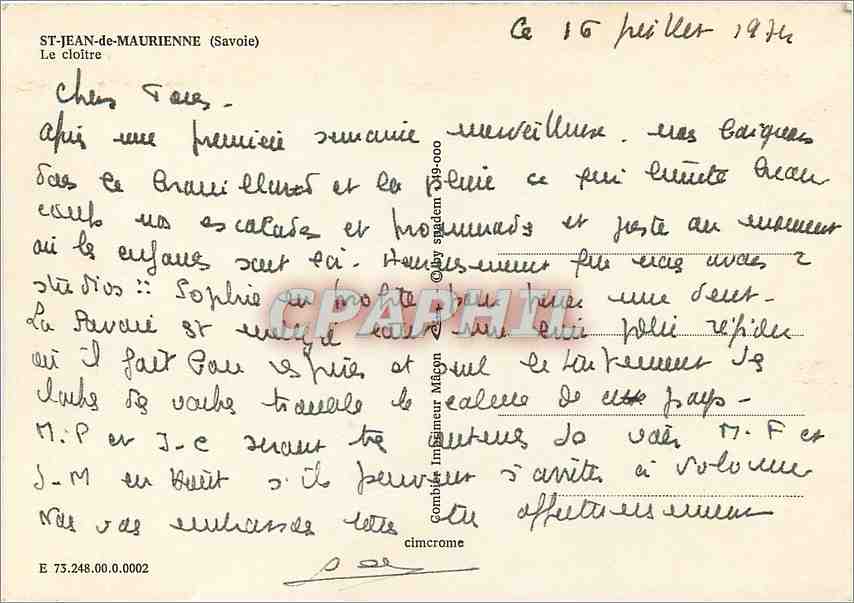 ST-JEAN-de-MAURIENNE (Savoie)
Le cloître
Ce 16 juillet 1974
Chers Tous -
Après une première semaine merveilleuse. nous baignons
dans le brouillard et la pluie ce qui limite beau
coup nos escalades et promenades et juste au moment
où les enfants sont là. Heureusement que nous avons 2
studios !! Sophie en profite pour percer une dent -
La Savoie est malgré tout une bien jolie région
où il fait bon respirer et seul le tintement des
cloches des vaches trouble le calme de pays -
M.P et J-C seront très contents de voir M.F et
J-M en Août s'ils peuvent s'arrêter à
Nous vous embrassons tous très affectueusement
Combier Imprimeur Mâcon
© by spadem 749-000
CPAPHIL
cimcrome
E 73.248.00.0.0002